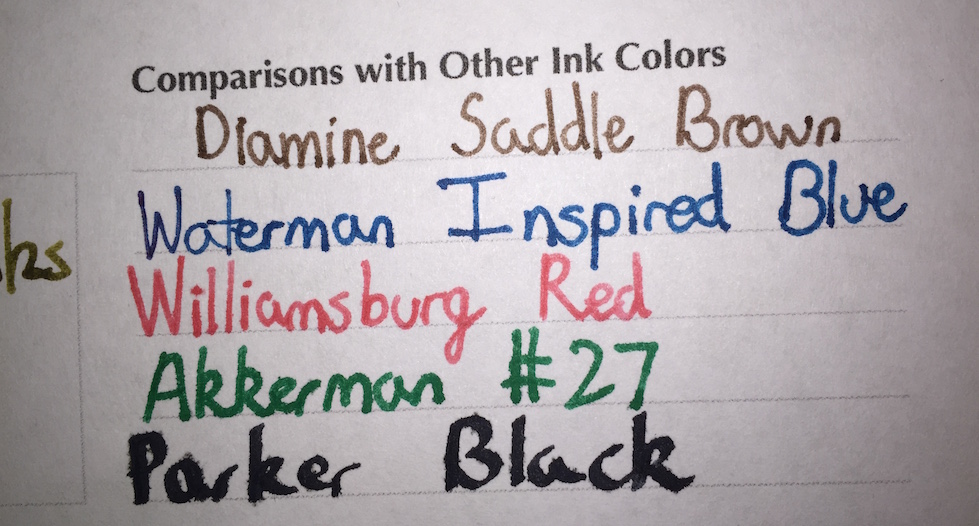 Comparisons with Other Ink Colors
Diamine Saddle Brown
Waterman Inspired Blue
Williamsburg Red
Akkerman #27
Parker Black